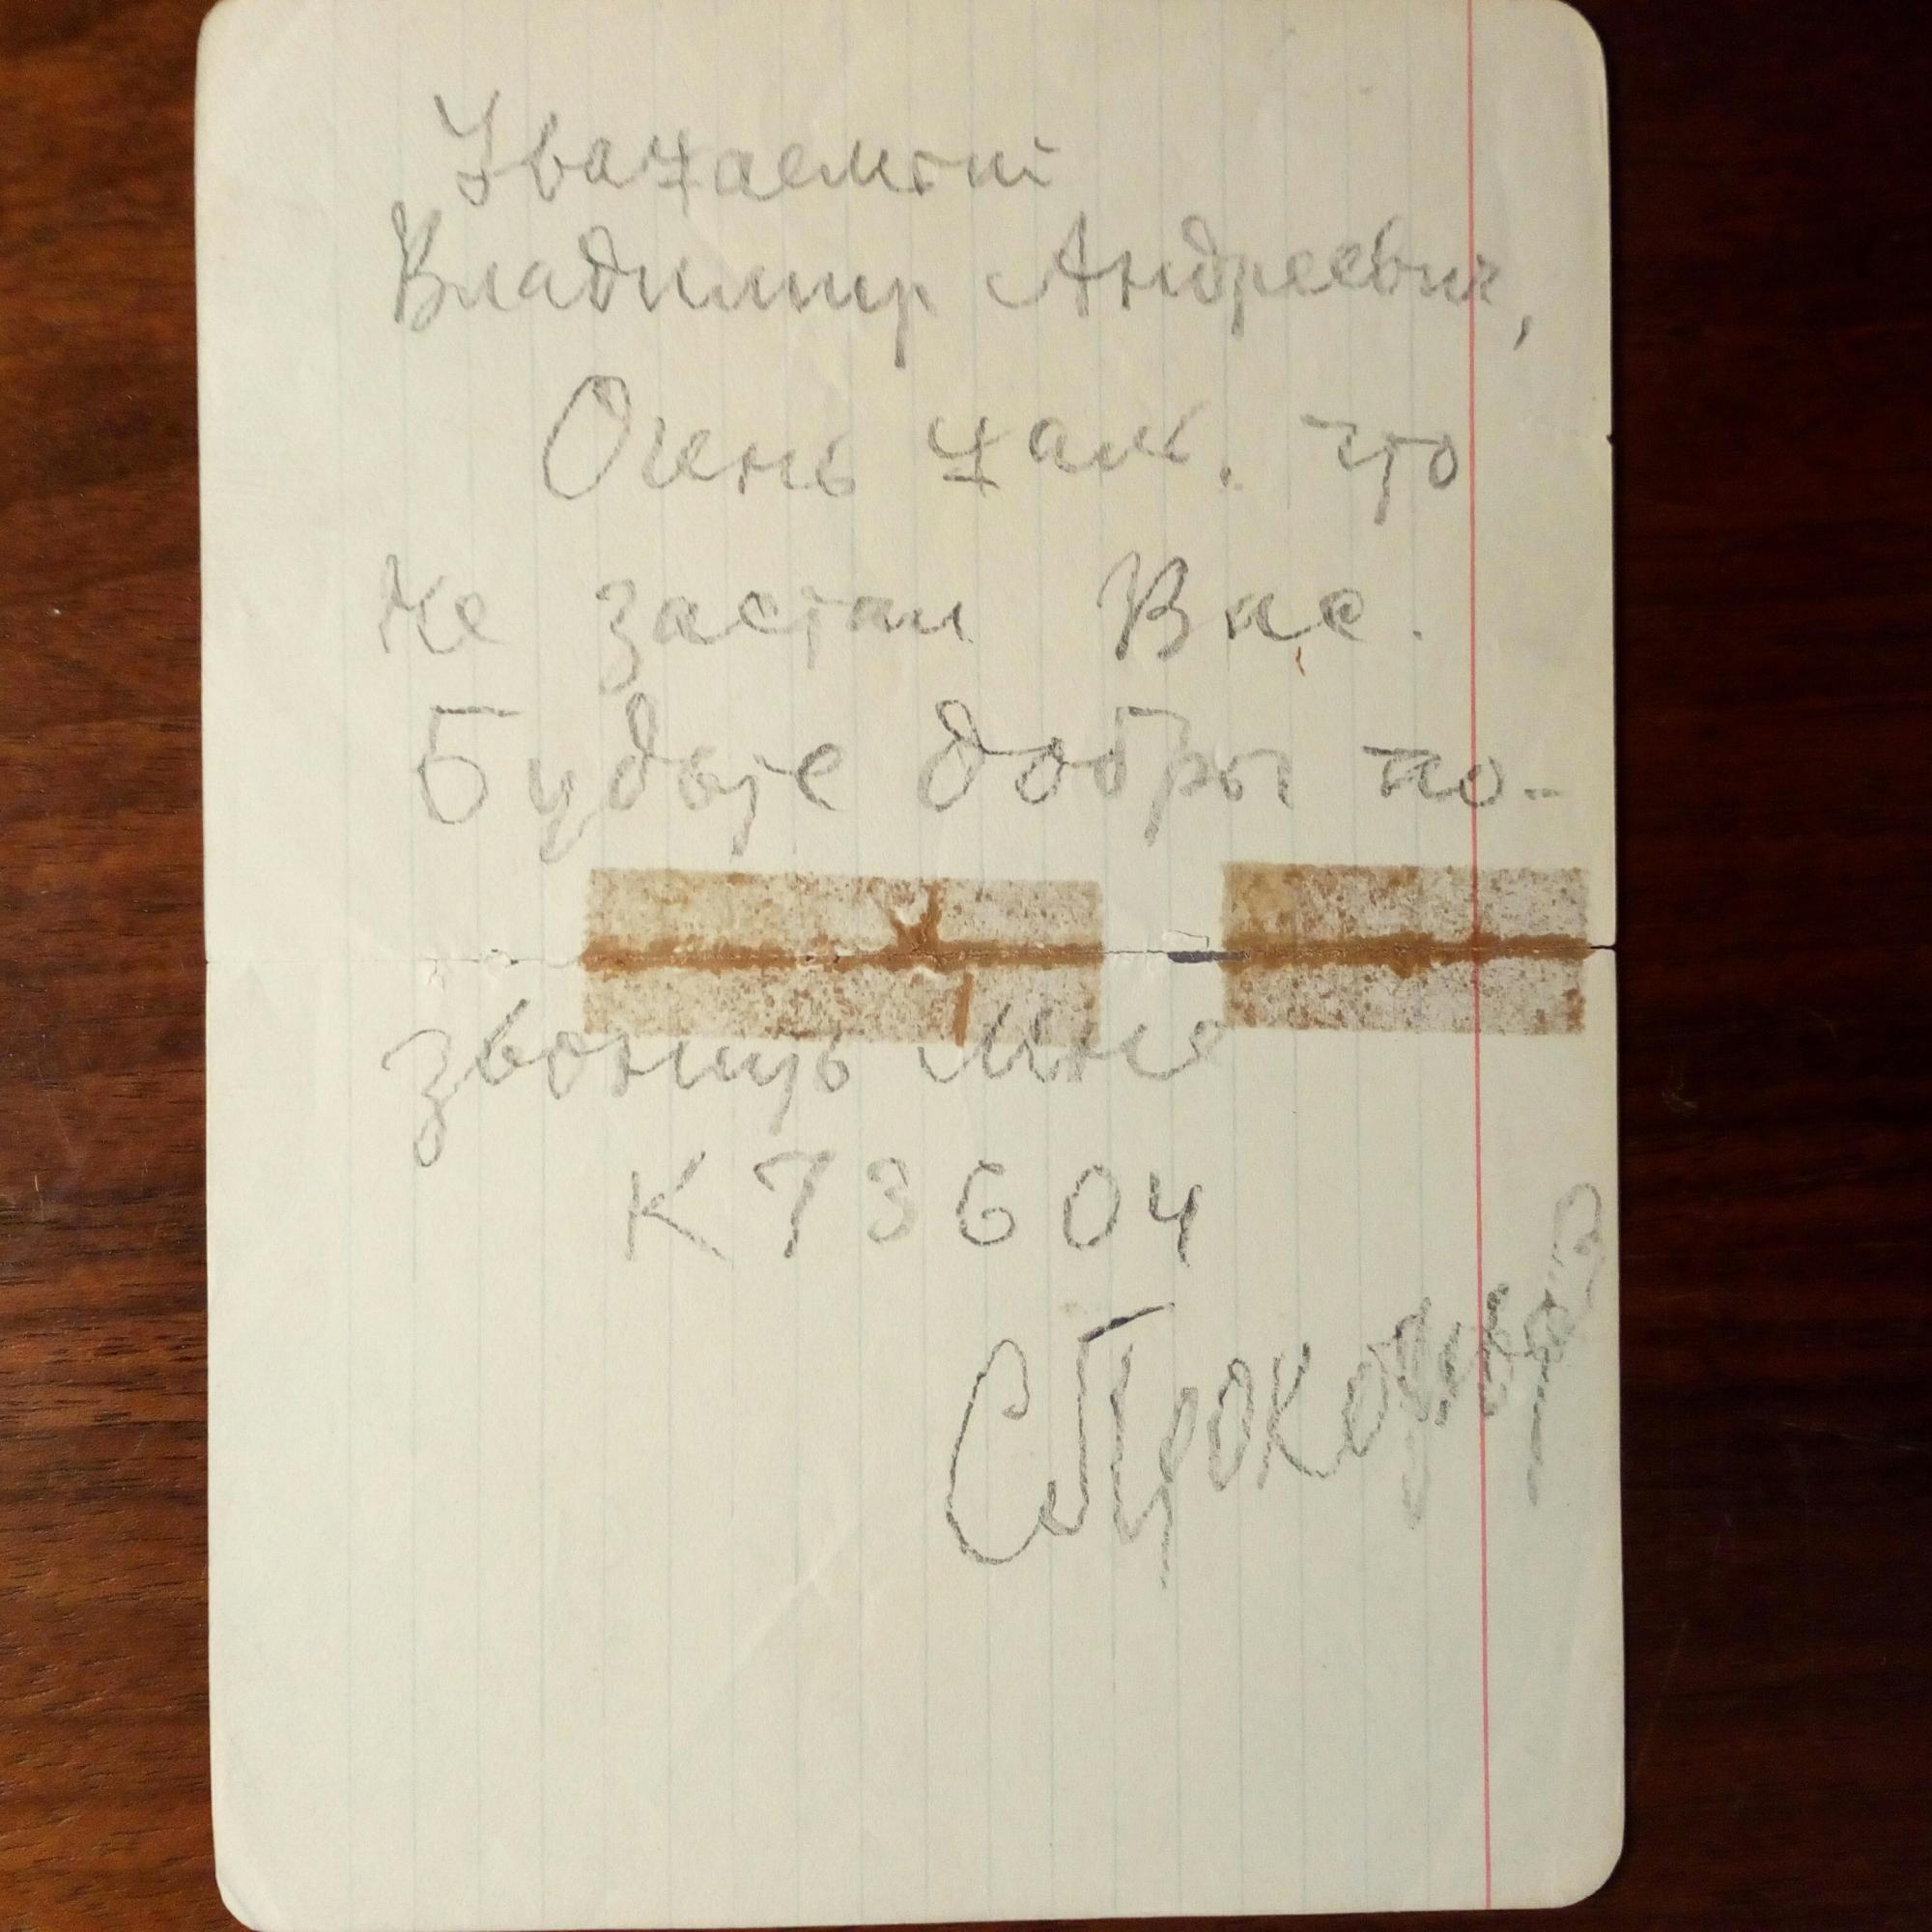 Уважаемый
Владимир Андреевич,
Очень жаль, что
не застал Вас.
Будьте добры по-
звонить мне
К 7 3 6 0 4
СПрокофьев